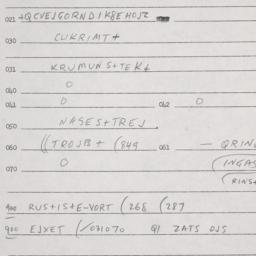 021 +QCVEJGORNDIK8EHOJZ
030 CUKRIMT+
031 KRUMUNS+TEK+
040 O
041 O 042 O
050 NASES+TREJ.
060 ((TROJB+ (849 061 — QRING
(INGAS
070 O
(RINS+
400 RUS+IS+E-VORT (268 (287
900 EJXET (/071070 QI ZATS OJS